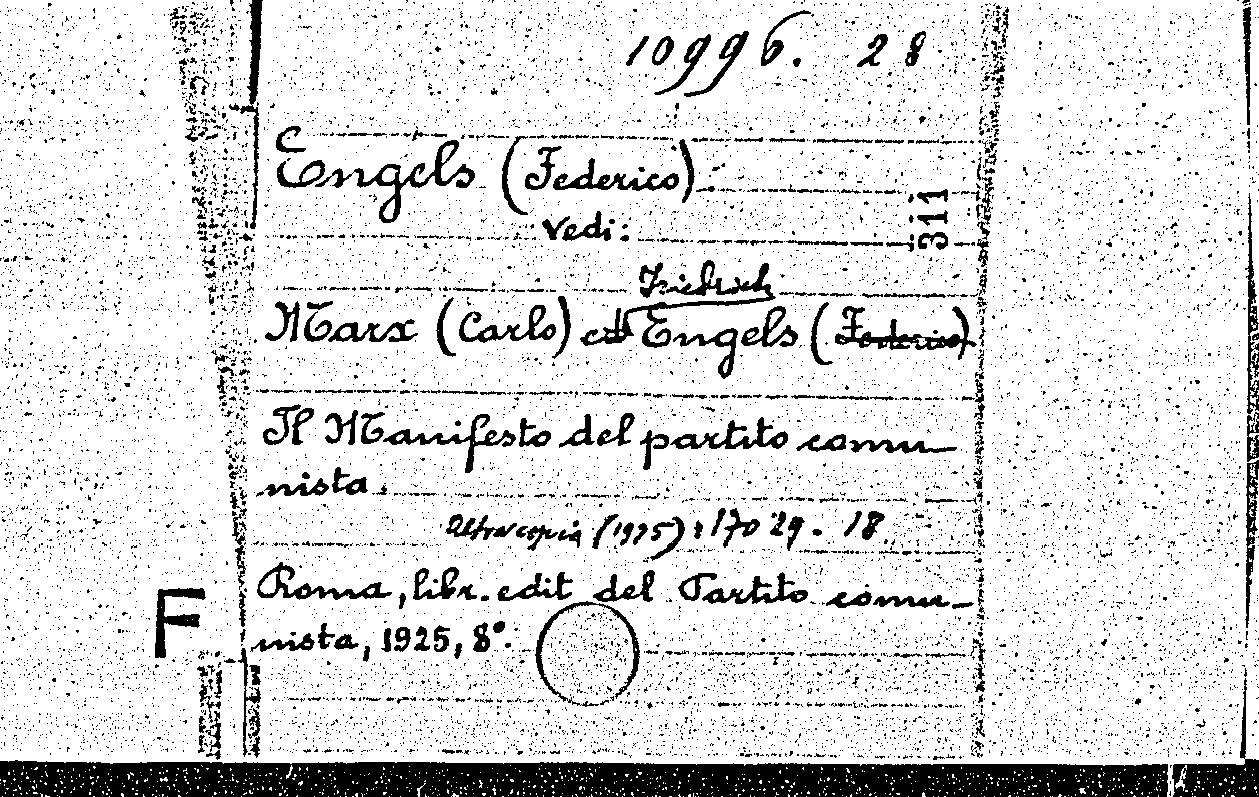 10996. 28
Engels (Federico).
vedi:
311
Friedrich
Marx (Carlo) ed Engels (Federico)
Il Manifesto del partito comu-
nista.
Altra copia (1925): 17029. 18
Roma, libr. edit del Partito comu-
nista, 1925, 8°.
F